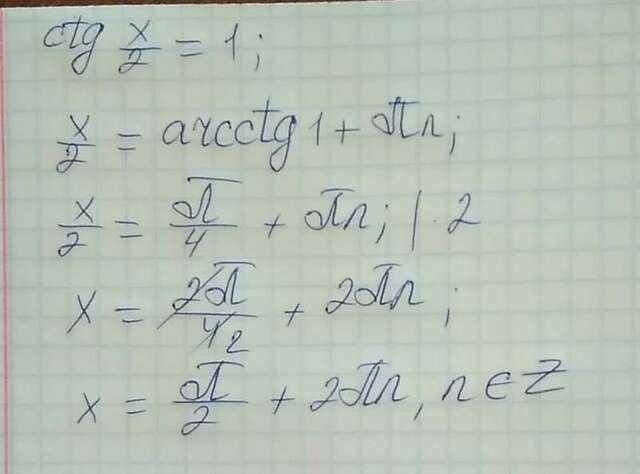 ctg x/2 = 1;
x/2 = arcctg 1 + πn;
x/2 = π/4 + πn; | · 2
x = 2π/42 + 2πn;
x = π/2 + 2πn, n ∈ Z